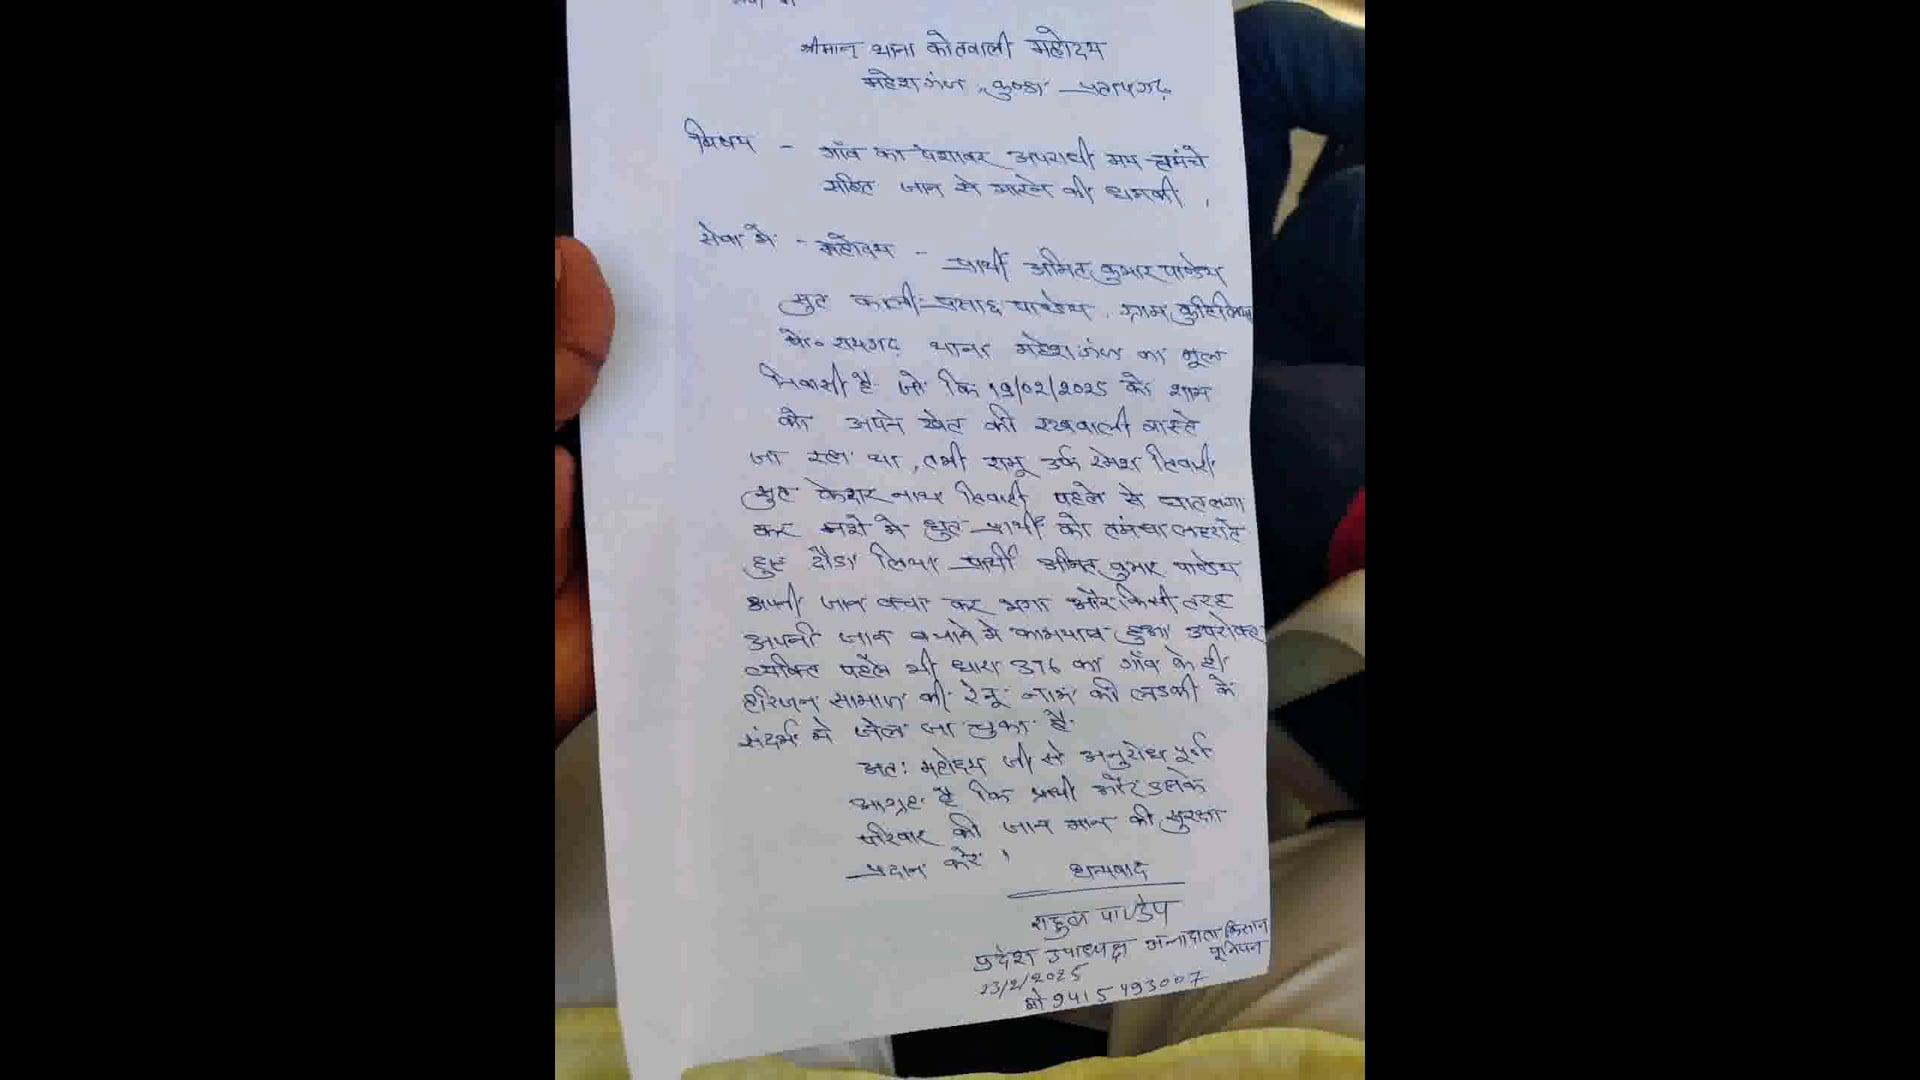 सेवा में
श्रीमान् थाना कोतवाली महोदय
महेशगंज, कुण्डा प्रतापगढ़
विषय - गाँव का पेशावर अपराधी मय तमंचे
सहित जान से मारने की धमकी ,
सेवा में - महोदय - प्रार्थी अमित कुमार पाण्डेय
सुत काली प्रसाद पाण्डेय, ग्राम
पो० रायगढ़ थाना महेशगंज का मूल
निवासी है जो कि 19/02/2025 को शाम
को अपने खेत की रखवाली वास्ते
जा रहा था, तभी रामू उर्फ रमेश तिवारी
सुत केदार नाथ तिवारी पहले से घात लगा
कर नशे मे धुत प्रार्थी को तमंचा लहराते
हुए दौडा लिया प्रार्थी अमित कुमार पाण्डेय
अपनी जान बचा कर भगा और किसी तरह
अपनी जान बचाने मे कामयाब हुआ उपरोक्त
व्यक्ति पहले भी धारा 376 का गाँव के ही
हरिजन सामाज की रेनू नाम की लडकी के
संदर्भ मे जेल जा चुका है
अत: महोदय जी से अनुरोध पूर्ण
आग्रह है कि प्रार्थी और उसके
परिवार की जान मान की सुरक्षा
प्रदान करे ।
धन्यवाद
राहुल पाण्डेय
प्रदेश उपाध्यक्ष अन्नदाता किसान
यूनियन
23/2/2025
मो 9415493007